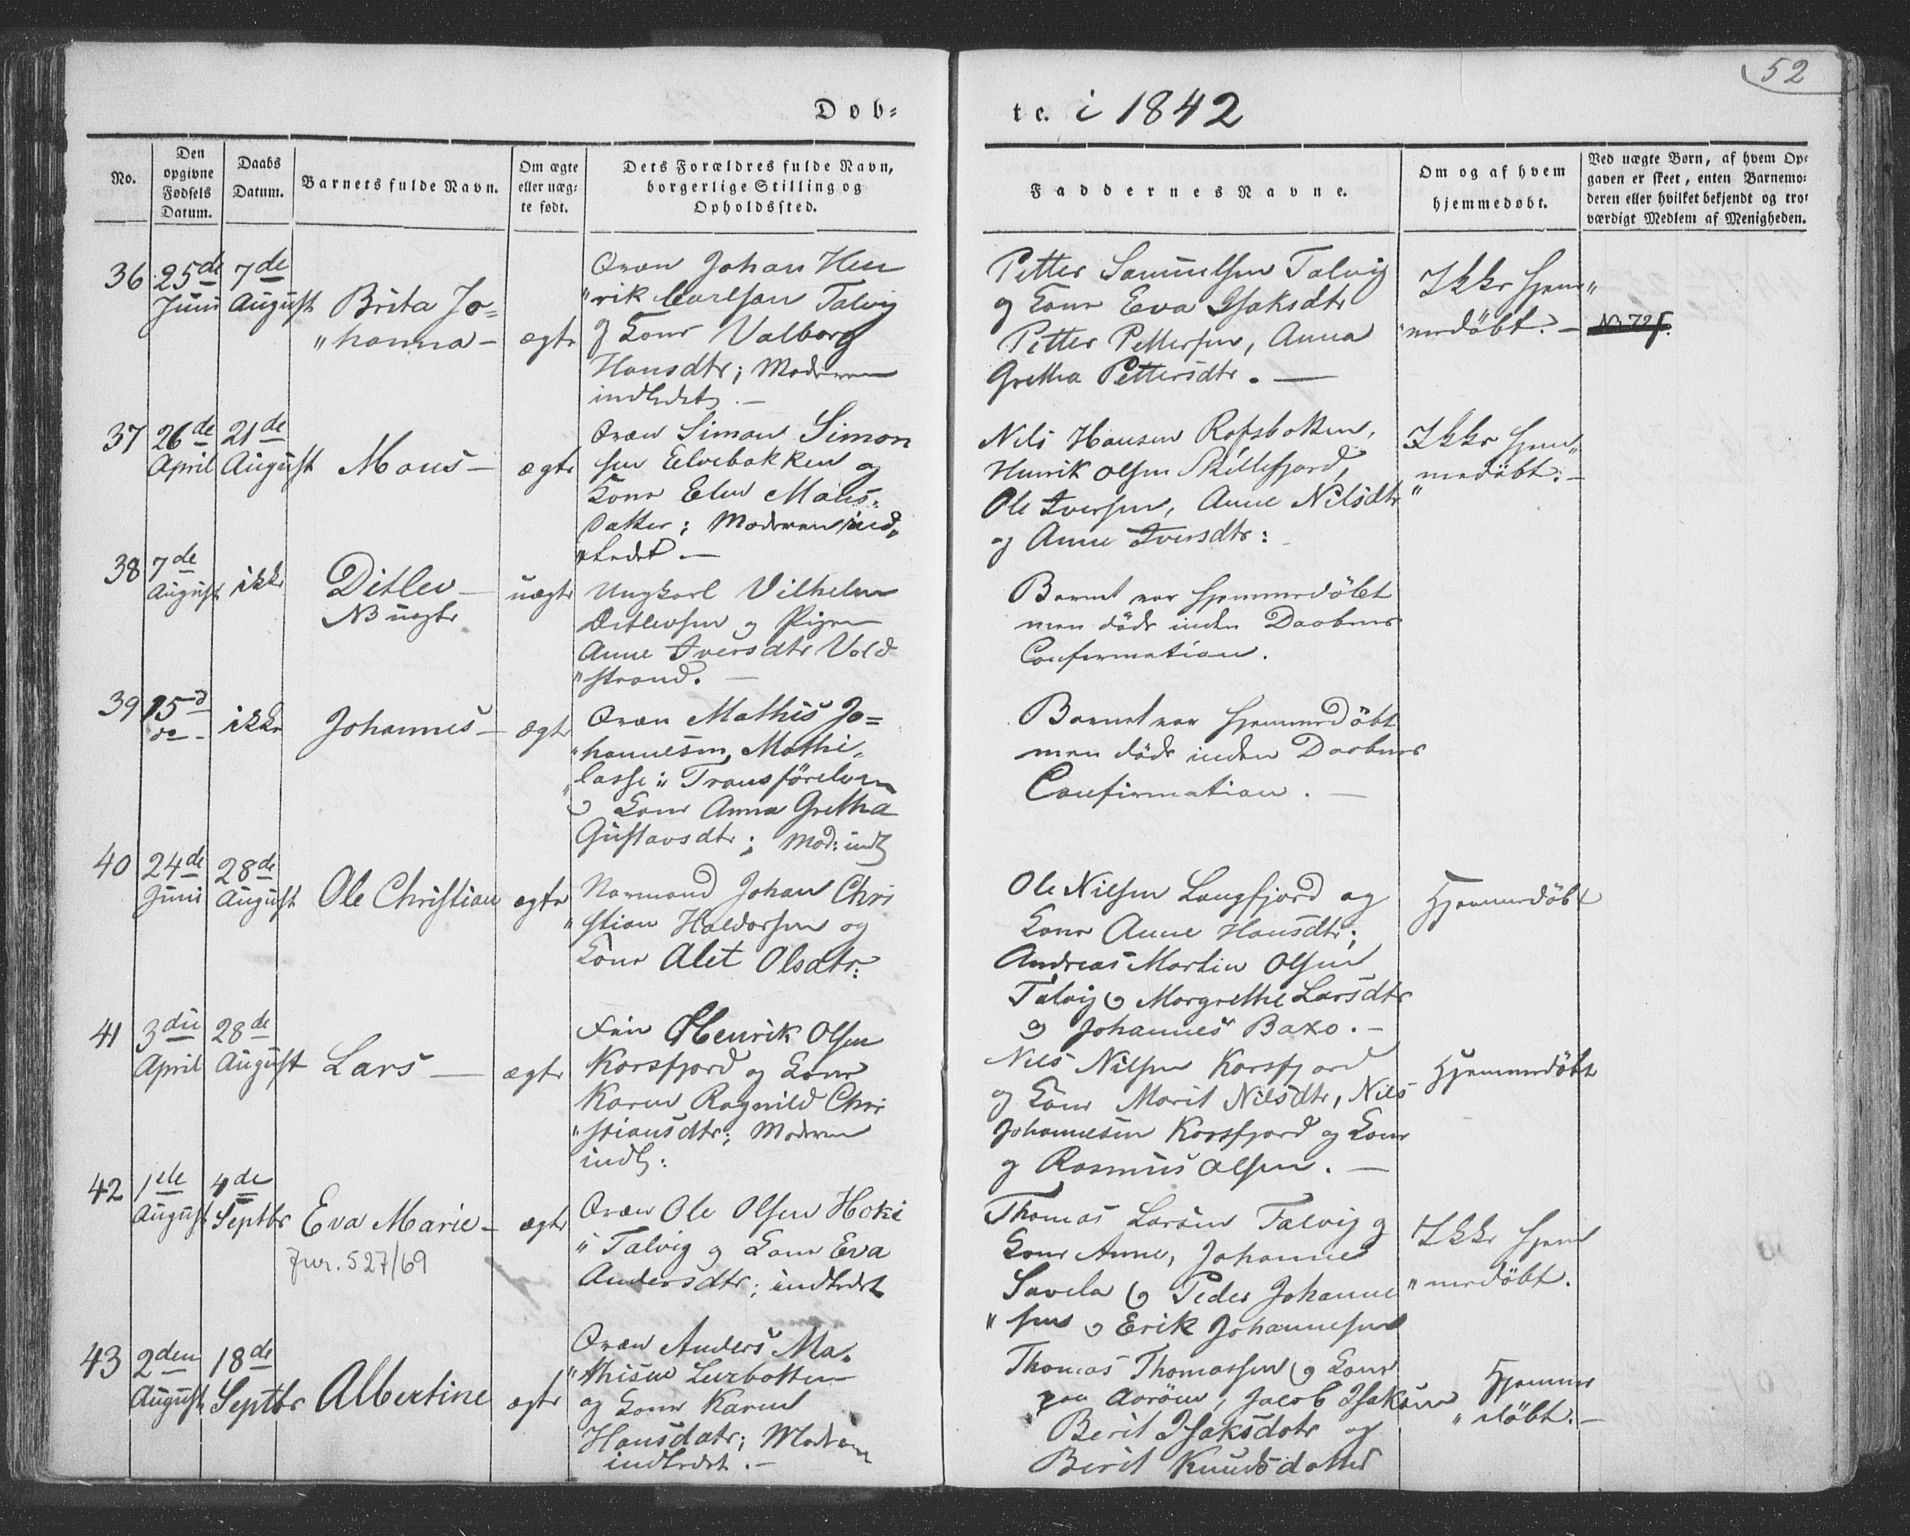 52
Døb-
te. i 1842
No.
Den
opgivne
Fødsels
Datum.
Daabs
Datum.
Barnets fulde Navn.
Om ægte
eller uæg-
te født.
Dets Forældres fulde Navn,
borgerlige Stilling og
Opholdssted.
Faddernes Navne.
Om og af hvem
hjemmedøbt.
Ved uægte Børn, af hvem Op-
gaven er skeet, enten Barnemo-
deren eller hvilket bekjendt og tro-
værdigt Medlem af Menigheden.
36
25de
Juni
7de
August
Brita Jo=
"hanna -
ægte
Qvæn Johan Hen
"rik Carlsen Talvig
og Kone Valborg
Hansdtr; Moderen
indledet. -
Petter Samuelsen Talvig
og Kone Eva Isaksdtr
Petter Pettersen, Anna
Gretha Pettersdtr. -
Ikke hjem"
"medöbt. -
37
26de
April
21de
August
Mons -
ægte
Qvæn Simon Simon
sen Elvebakken og
Kone Elen Mons-
datter; Moderen ind-
"ledet -
Nils Hansen Rafsbotten,
Henrik Olsen Skillefjord,
Ole Iversen, Anne Nilsdtr
og Anne Iversdtr:
Ikke hjem"
"medöbt: -
38
7de
August
ikke
Ditlev -
NB uægte
uægte
Ungkarl Vilhelm
Ditlevsen og Pigen
Anne Iversdtr Vold
"strand. -
Barnet var hjemmedöbt
men döde inden Daabens
Confirmation.
39
15d
do -
ikke
Johannes -
ægte
Qvæn Mathis Jo=
"hannesen Mathi-
"lasse: Transförelven
og Kone Anna Gretha
Gustavsdtr; Mod: indl
Barnet var hjemmedöbt
men döde inden Daabens
Confirmation. -
40
24de
Juni
28de
August
Ole Christian
ægte
Normand Johan Chri
"stian Haldorsen og
Kone Alet Olsdtr:
Ole Nilsen Langfjord og
Kone Anne Hansdtr;
Andreas Martin Olsen
Talvig og Margrethe Larsdtr
og Johannes Baxo. -
Hjemmedöbt
41
3die
April
28de
August
Lars -
ægte
Fin Henrik Olsen
Korsfjord og Kone
Karen Ragnild Chri
"stiansdtr; Moderen
indl:
Nils Nilsen Korsfjord
og Kone Marit Nilsdtr, Nils
Johannesen Korsfjord og Kone
og Rasmus Olsen. -
Hjemmedöbt
42
1ste
August
4de
Septbr
Eva Marie -
Jur. 527/69
ægte
Qvæn Ole Olsen Hoki
"Talvig og Kone Eva
Andersdtr; indledet
Thomas Larsen Talvig og
Kone Anne, Johanne
Savela og Peder Johanne
"sen og Erik Johannesen
Ikke hjem
"medöbt.
43
2den
August
18de
Septbr
Albertine
ægte
Qvæn Anders Ma-
"thisen Lerbotten
og Kone Karen
Hansdatr; Moderen
indledet. -
Thomas Thomassen og Kone
paa Aaröen, Jacob Isaksen
Berit Isaksdatr og
Berit Knudsdatter
Hjemme
"döbt. -